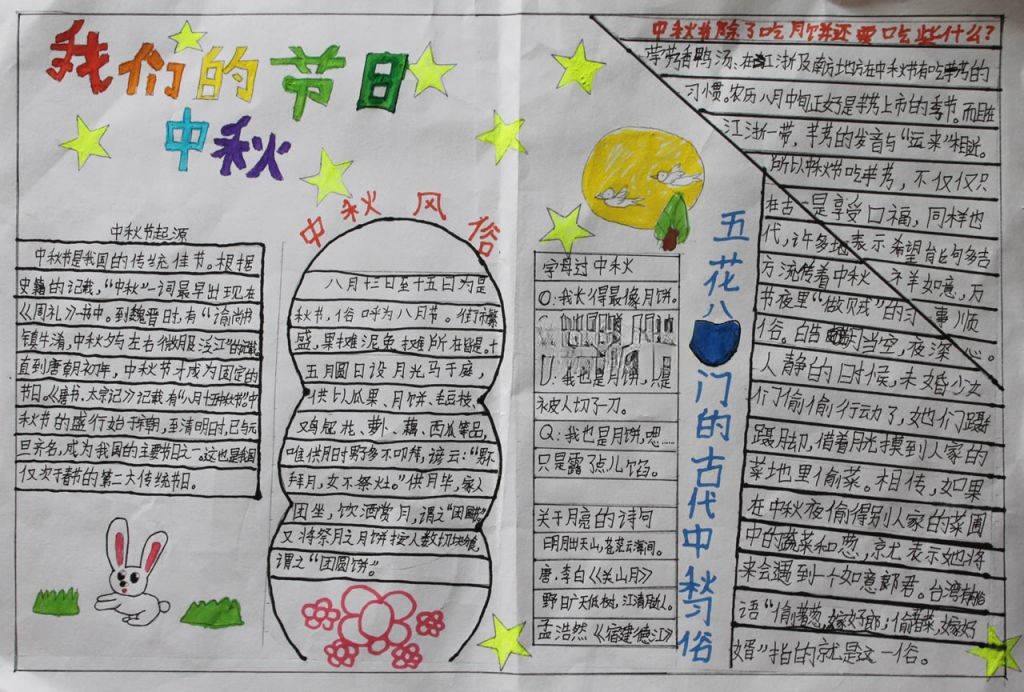 我们的节日
中秋
中秋节起源
中秋节是我国的传统佳节。根据
史籍的记载，“中秋”一词最早出现在
《周礼》一书中。到魏晋时，有“谕尚书
镇牛渚，中秋夕与左右微服泛江”的记载
直到唐朝初年，中秋节才成为固定的
节日。《唐书·太宗记》记载有“八月十五中秋节”中
秋节的盛行始于宋朝，至清明时，已与元
旦齐名，成为我国的主要节日之一。这也是我国
仅次于春节的第二大传统节日。
中秋风俗
八月十三日至十五日为是
秋节，俗呼为八月节。
盛，果摊泥兔摊所在皆是。十
五月圆日设月光马于庭，
供以瓜果、月饼、毛豆枝、
鸡冠花、萝卜、藕、西瓜等品，
唯供月时男多不叩拜，谚云：“男不
拜月，女不祭灶。”供月毕，家人
团坐，饮酒赏月，谓之“团圆”
又将祭月之月饼按人数切块
谓之“团圆饼”。
字母过中秋
O：我长得最像月饼。
U：我也是月饼，只是
被人切了一刀。
Q：我也是月饼，嗯……
只是露了点儿馅。
关于月亮的诗词
明月出天山，苍茫云海间。
唐·李白《关山月》
野旷天低树，江清月近人。
孟浩然《宿建德江》
五花八门的古代中秋习俗
中秋节除了吃月饼还要吃些什么？
芋艿香鸭汤、在江浙及南方地方在中秋节有吃芋艿的
习惯。农历八月中旬正好是芋艿上市的季节。而且
江浙一带，芋艿的发音与“运来”相近。
所以中秋节吃芋艿，不仅仅只
是享受口福，同样也
表示希望能句多吉
祥如意，万
事顺
心。
在古
代，许多地
方流传着中秋
节夜里“做贼”的习
俗。皓月当空，夜深
人静的时候，未婚少女
们偷偷行动了，她们蹑
蹑脚，借着月光摸到人家的
菜地里偷菜。相传，如果
在中秋夜偷得别人家的菜圃
中的蔬菜和葱，就表示她将
来会遇到一个如意郎君。台湾有俗
语“偷着葱，嫁好郎；偷着菜，嫁好
婿”指的就是这一俗。